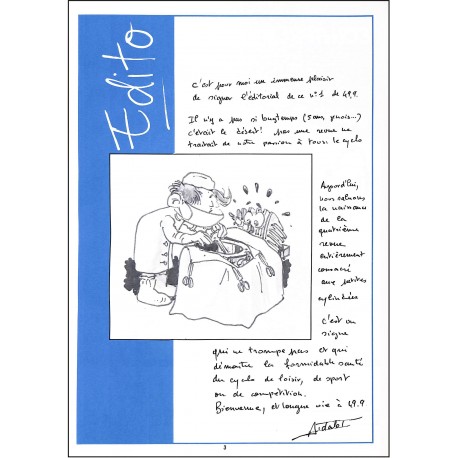 Edito
c'est pour moi un immense plaisir
de signer l'éditorial de ce n°1 de 49.9
Il n'y a pas si longtemps (5 ans, puis...)
c'était le désert! pas une revue ne
traitait de notre passion à tous: le cyclo
Aujourd'hui,
nous saluons
la naissance
de la
quatrième
revue
entièrement
consacré
aux petites
cylindrées
c'est un
signe
qui ne trompe pas et qui
démontre la formidable santé
du cyclo de loisir, de sport
ou de compétition.
Bienvenue, et longue vie à 49.9
3